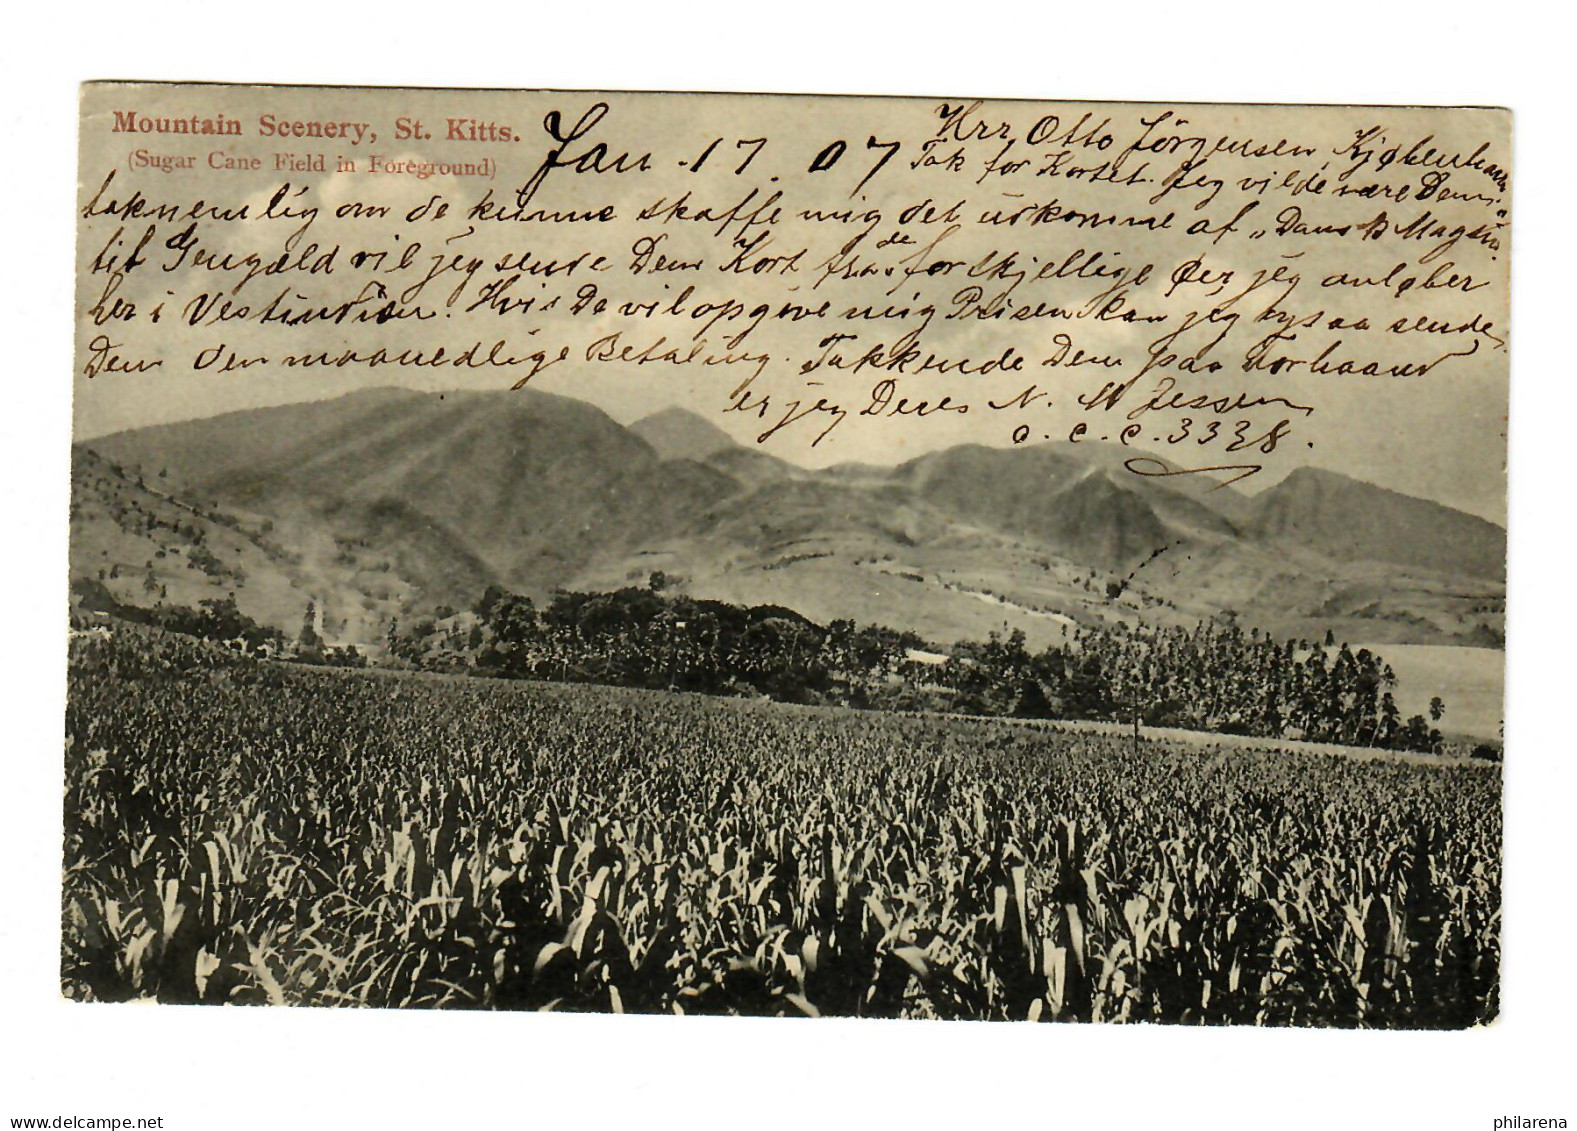 Mountain Scenery, St. Kitts.
(Sugar Cane Field in Foreground)
Jan. 17. 07
Hrr. Otto Jörgensen, Kjøbenhavn
Tak for Kortet. Jeg vilde være Dem
taknemlig om de kunne skaffe mig det udkomme af „Dansk Magsin"
til Gengæld vil jeg sende Dem Kort fra de forskjellige Øer, jeg anløber
her i Vestindien. Hvis De vil opgive mig Prisen kan jeg ogsaa sende
Dem den maanedlige Betaling. Takkende Dem paa Forhaand
er jeg Deres N. M Jessen
c. c. c. 3338.
delcampe.net
philarena